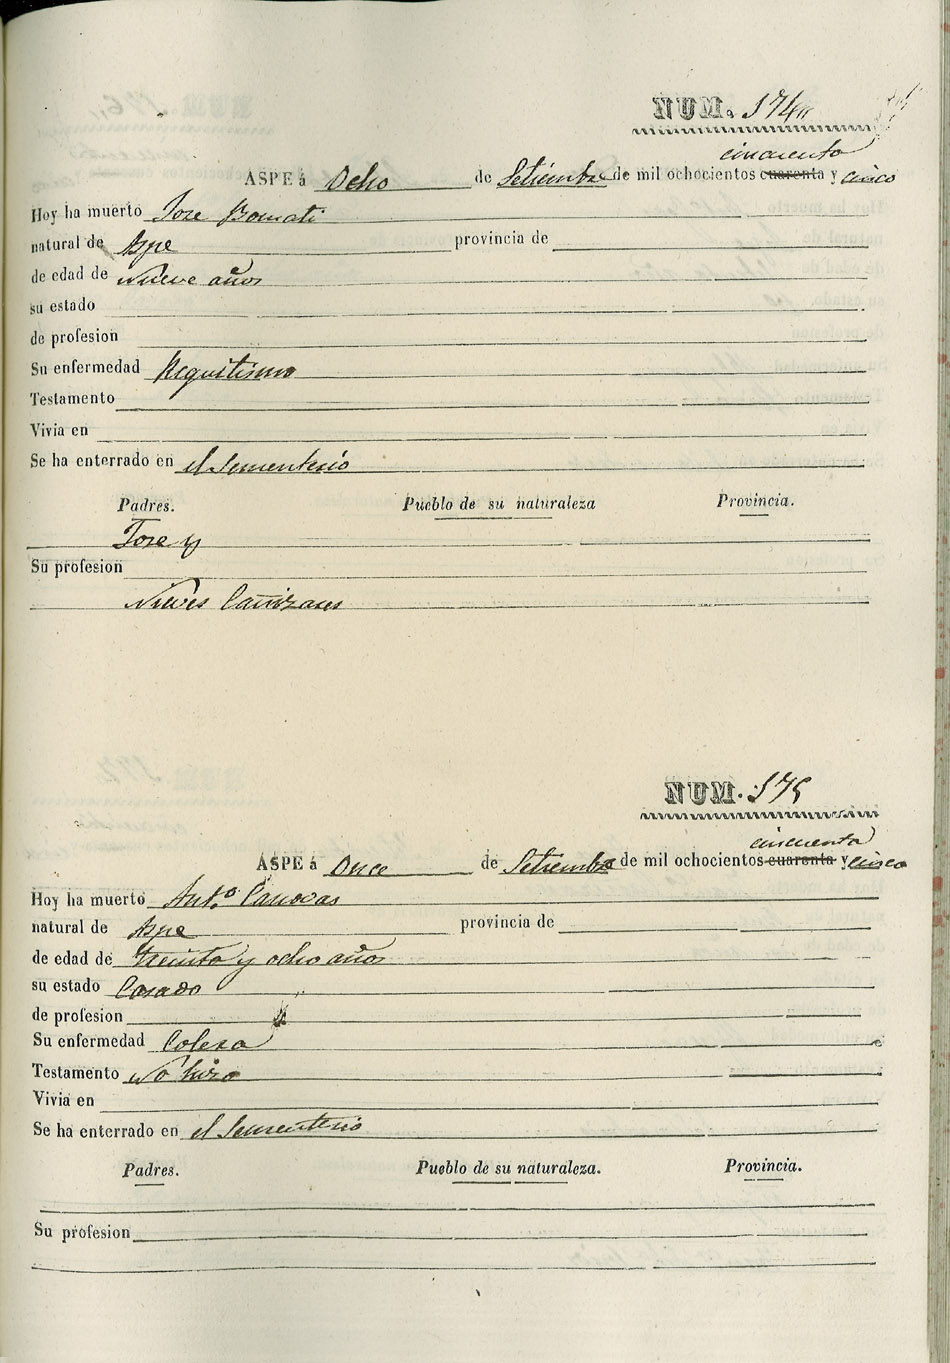 NUM. 174
cincuenta
ASPE á Ocho de Setiembre de mil ochocientos cuarenta y cinco
Hoy ha muerto Jose Bomati
natural de Aspe provincia de
de edad de Nueve años
su estado
de profesion
Su enfermedad Requitismo
Testamento
Vivia en
Se ha enterrado en el Sementerio
Padres. Pueblo de su naturaleza Provincia.
Jose y
Su profesion
Nieves Cañizares
NUM. 175
cincuenta
ASPE á Once de Setiembre de mil ochocientos cuarenta y cinco
Hoy ha muerto Ant.o Canovas
natural de Aspe provincia de
de edad de Treinta y ocho años
su estado Casado
de profesion
Su enfermedad Colera
Testamento No hizo
Vivia en
Se ha enterrado en el Sementerio
Padres. Pueblo de su naturaleza. Provincia.
Su profesion